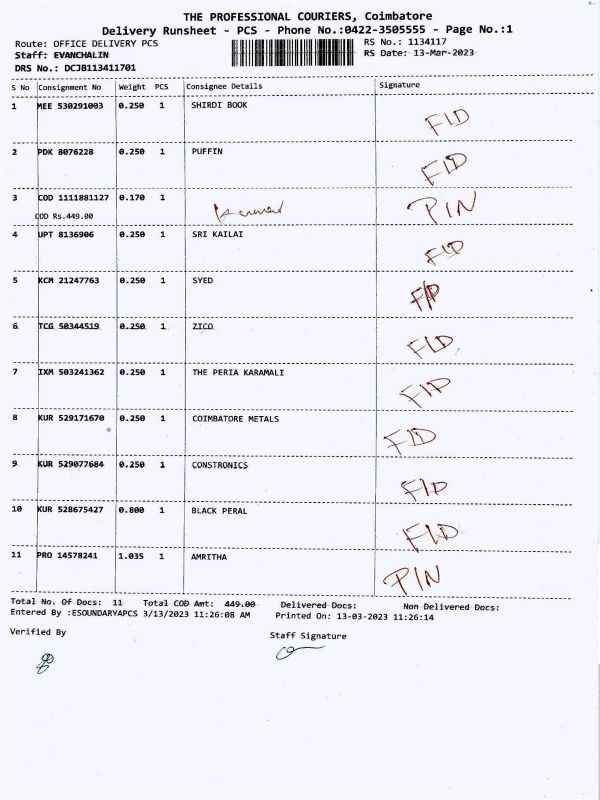 THE PROFESSIONAL COURIERS, Coimbatore
Delivery Runsheet - PCS - Phone No.:0422-3505555 - Page No.:1
Route: OFFICE DELIVERY PCS RS No.: 1134117
Staff: EVANCHALIN RS Date: 13-Mar-2023
DRS No.: DCJB113411701
S No Consignment No Weight PCS Consignee Details Signature
1 MEE 530291003 0.250 1 SHIRDI BOOK F/D
2 PDK 8076228 0.250 1 PUFFIN F/D
3 COD 1111881127 0.170 1 P/N
COD Rs.449.00
4 UPT 8136906 0.250 1 SRI KAILAI F/D
5 KCM 21247763 0.250 1 SYED F/D
6 TCG 50344519 0.250 1 ZICO F/D
7 IXM 503241362 0.250 1 THE PERIA KARAMALI F/D
8 KUR 529171670 0.250 1 COIMBATORE METALS F/D
9 KUR 529077684 0.250 1 CONSTRONICS F/D
10 KUR 528675427 0.800 1 BLACK PERAL F/D
11 PRO 14578241 1.035 1 AMRITHA P/N
Total No. Of Docs: 11 Total COD Amt: 449.00 Delivered Docs: Non Delivered Docs:
Entered By :ESOUNDARYAPCS 3/13/2023 11:26:08 AM Printed On: 13-03-2023 11:26:14
Verified By Staff Signature